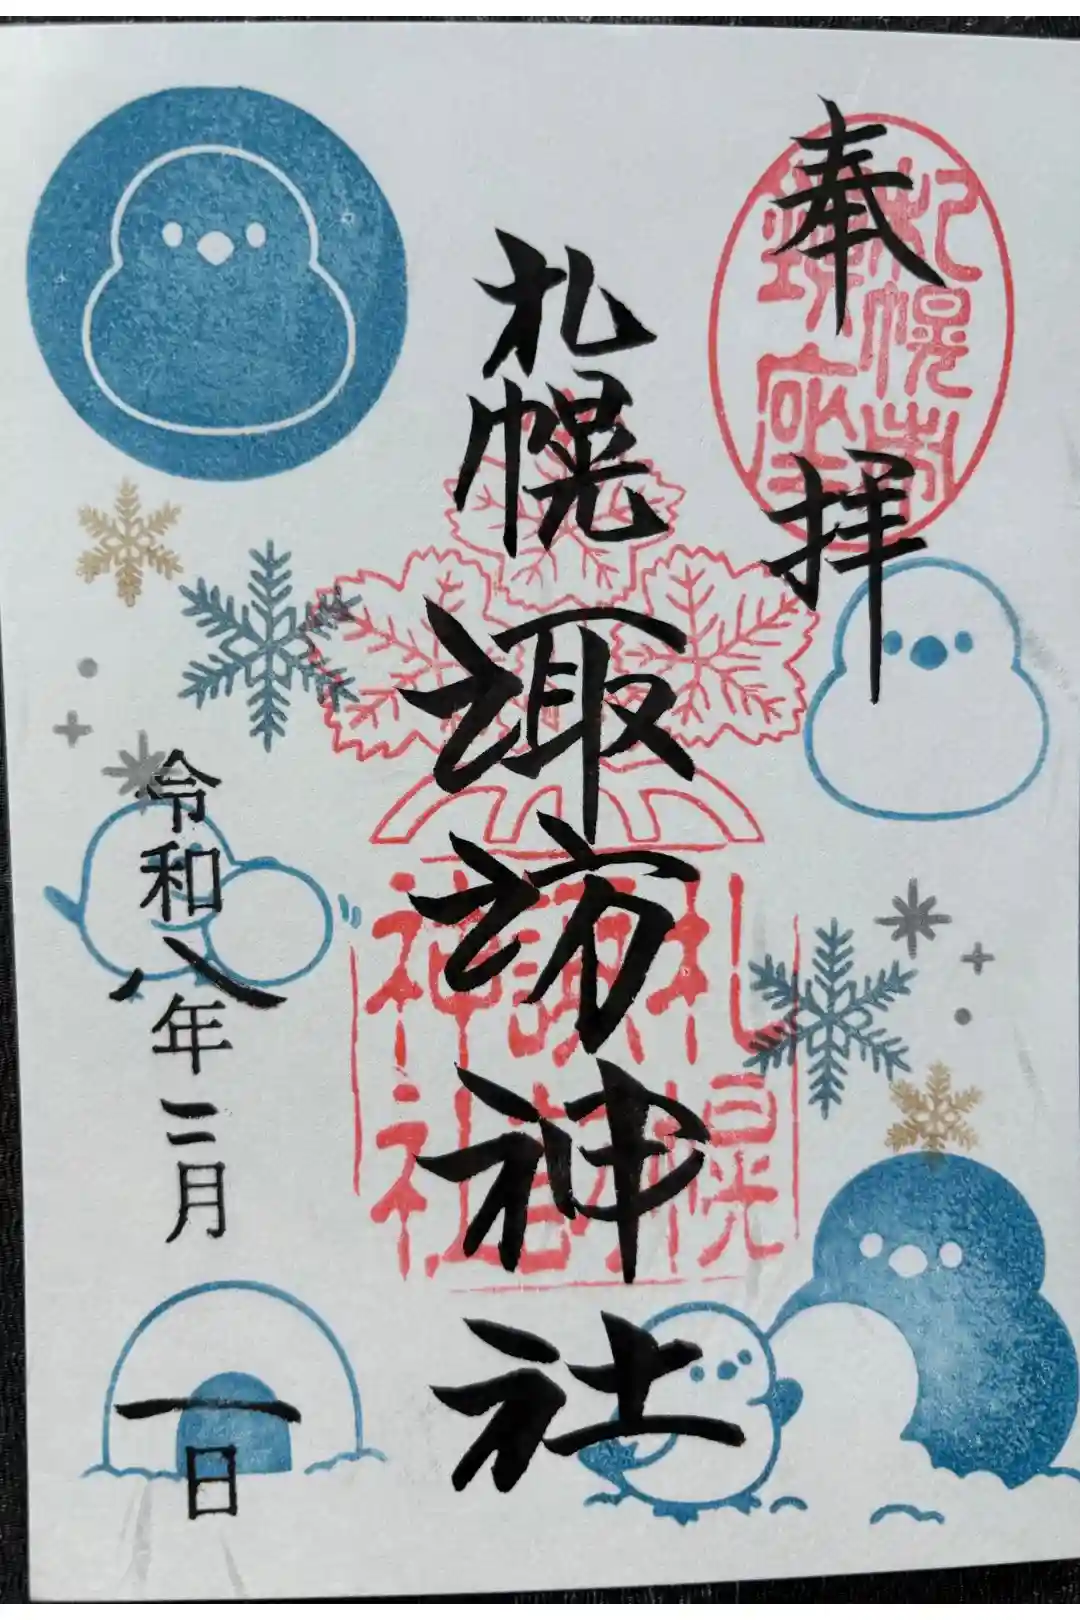 奉拝
札幌市
鎮座
札幌諏訪神社
札幌
諏訪
神社
令和八年二月一日